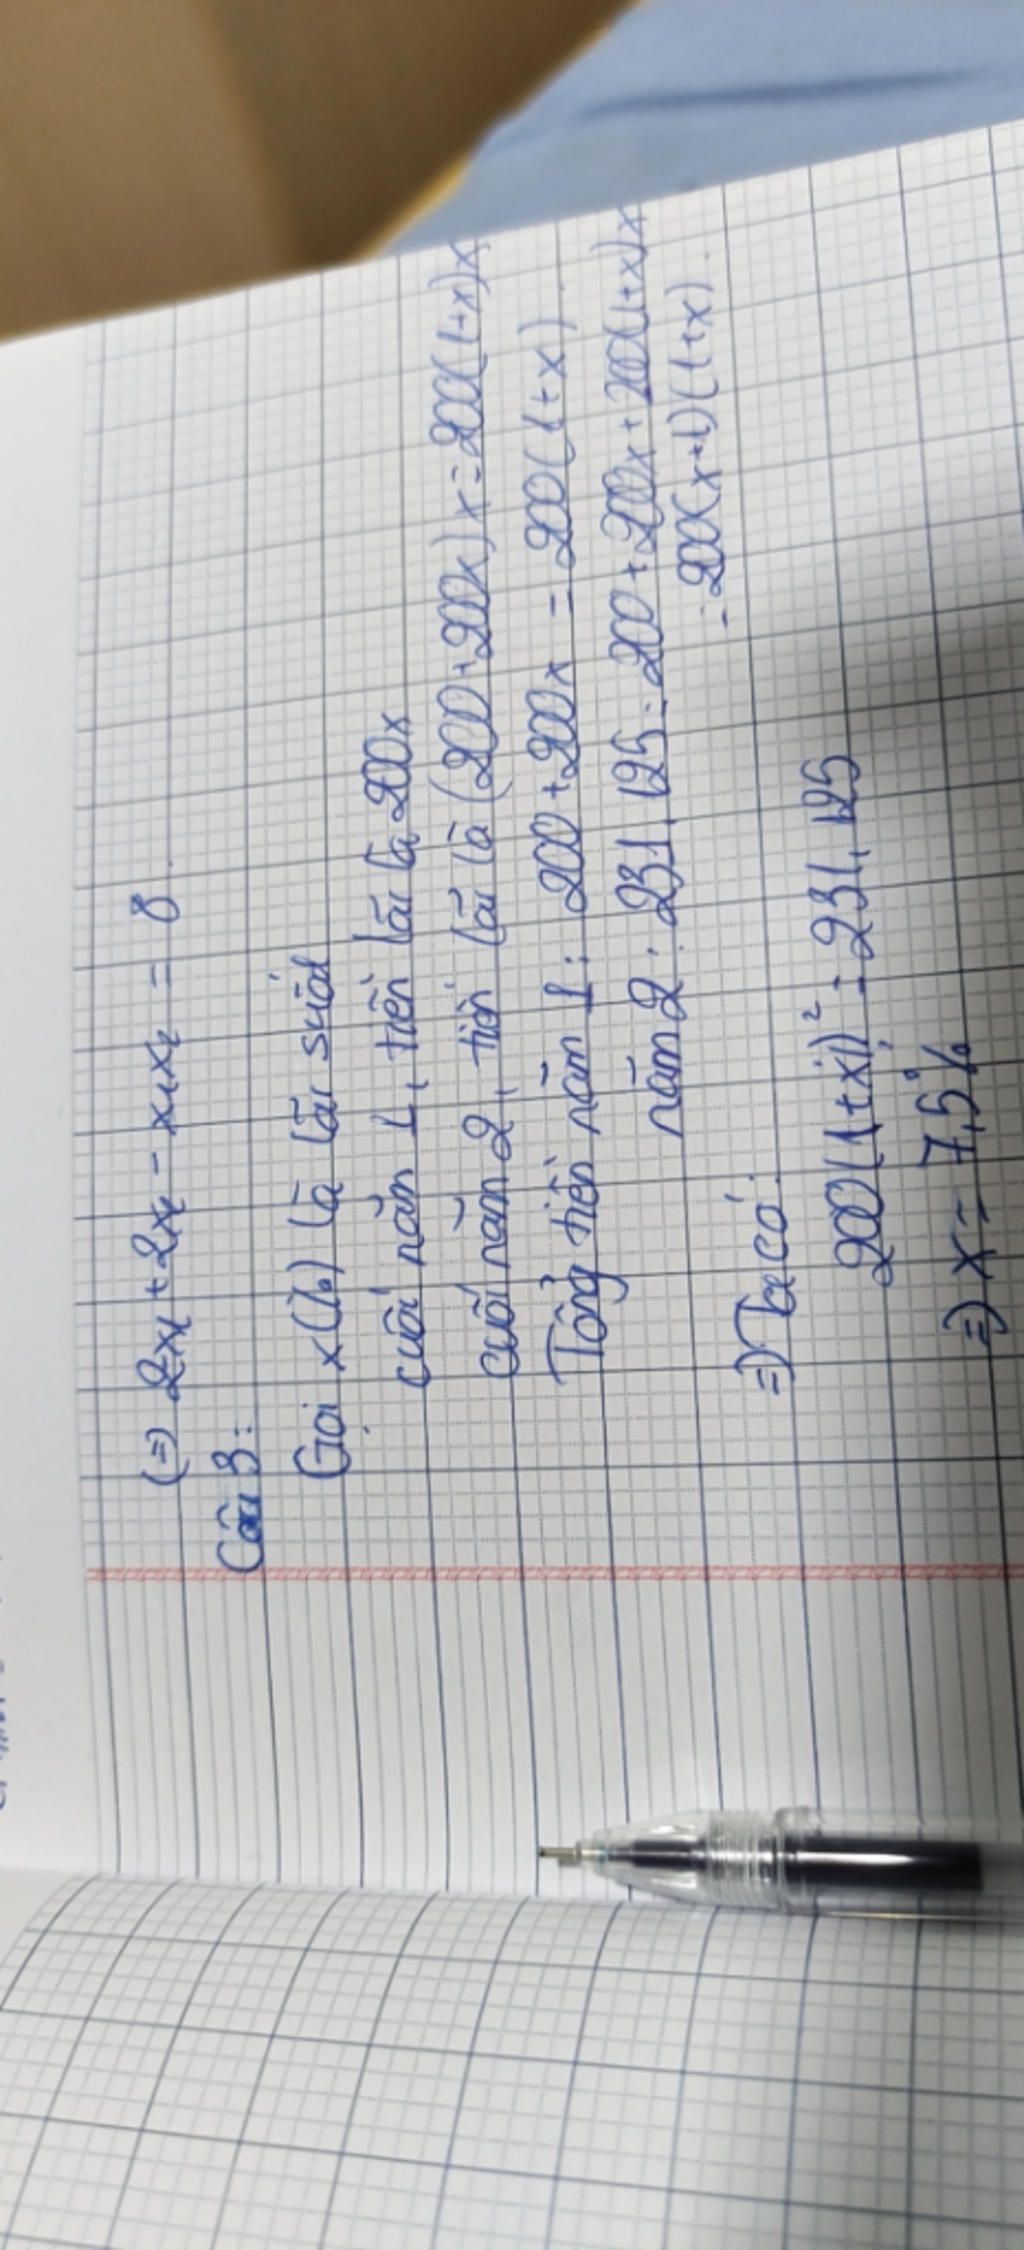 (=) 2x₁ + 2x₂ - x₁x₂ = 8
Câu 3:
Gọi x(%) là lãi suất
cuối năm 1, tiền lãi là 200x
cuối năm 2, tiền lãi là (200+200x)x = 200(1+x)x
Tổng tiền năm 1: 200+200x = 200(1+x).
năm 2: 231,125 = 200+200x+200(1+x)x
= 200(x+1)(1+x).
=) Ta có:
200(1+x)² = 231,125
=) x = 7,5%